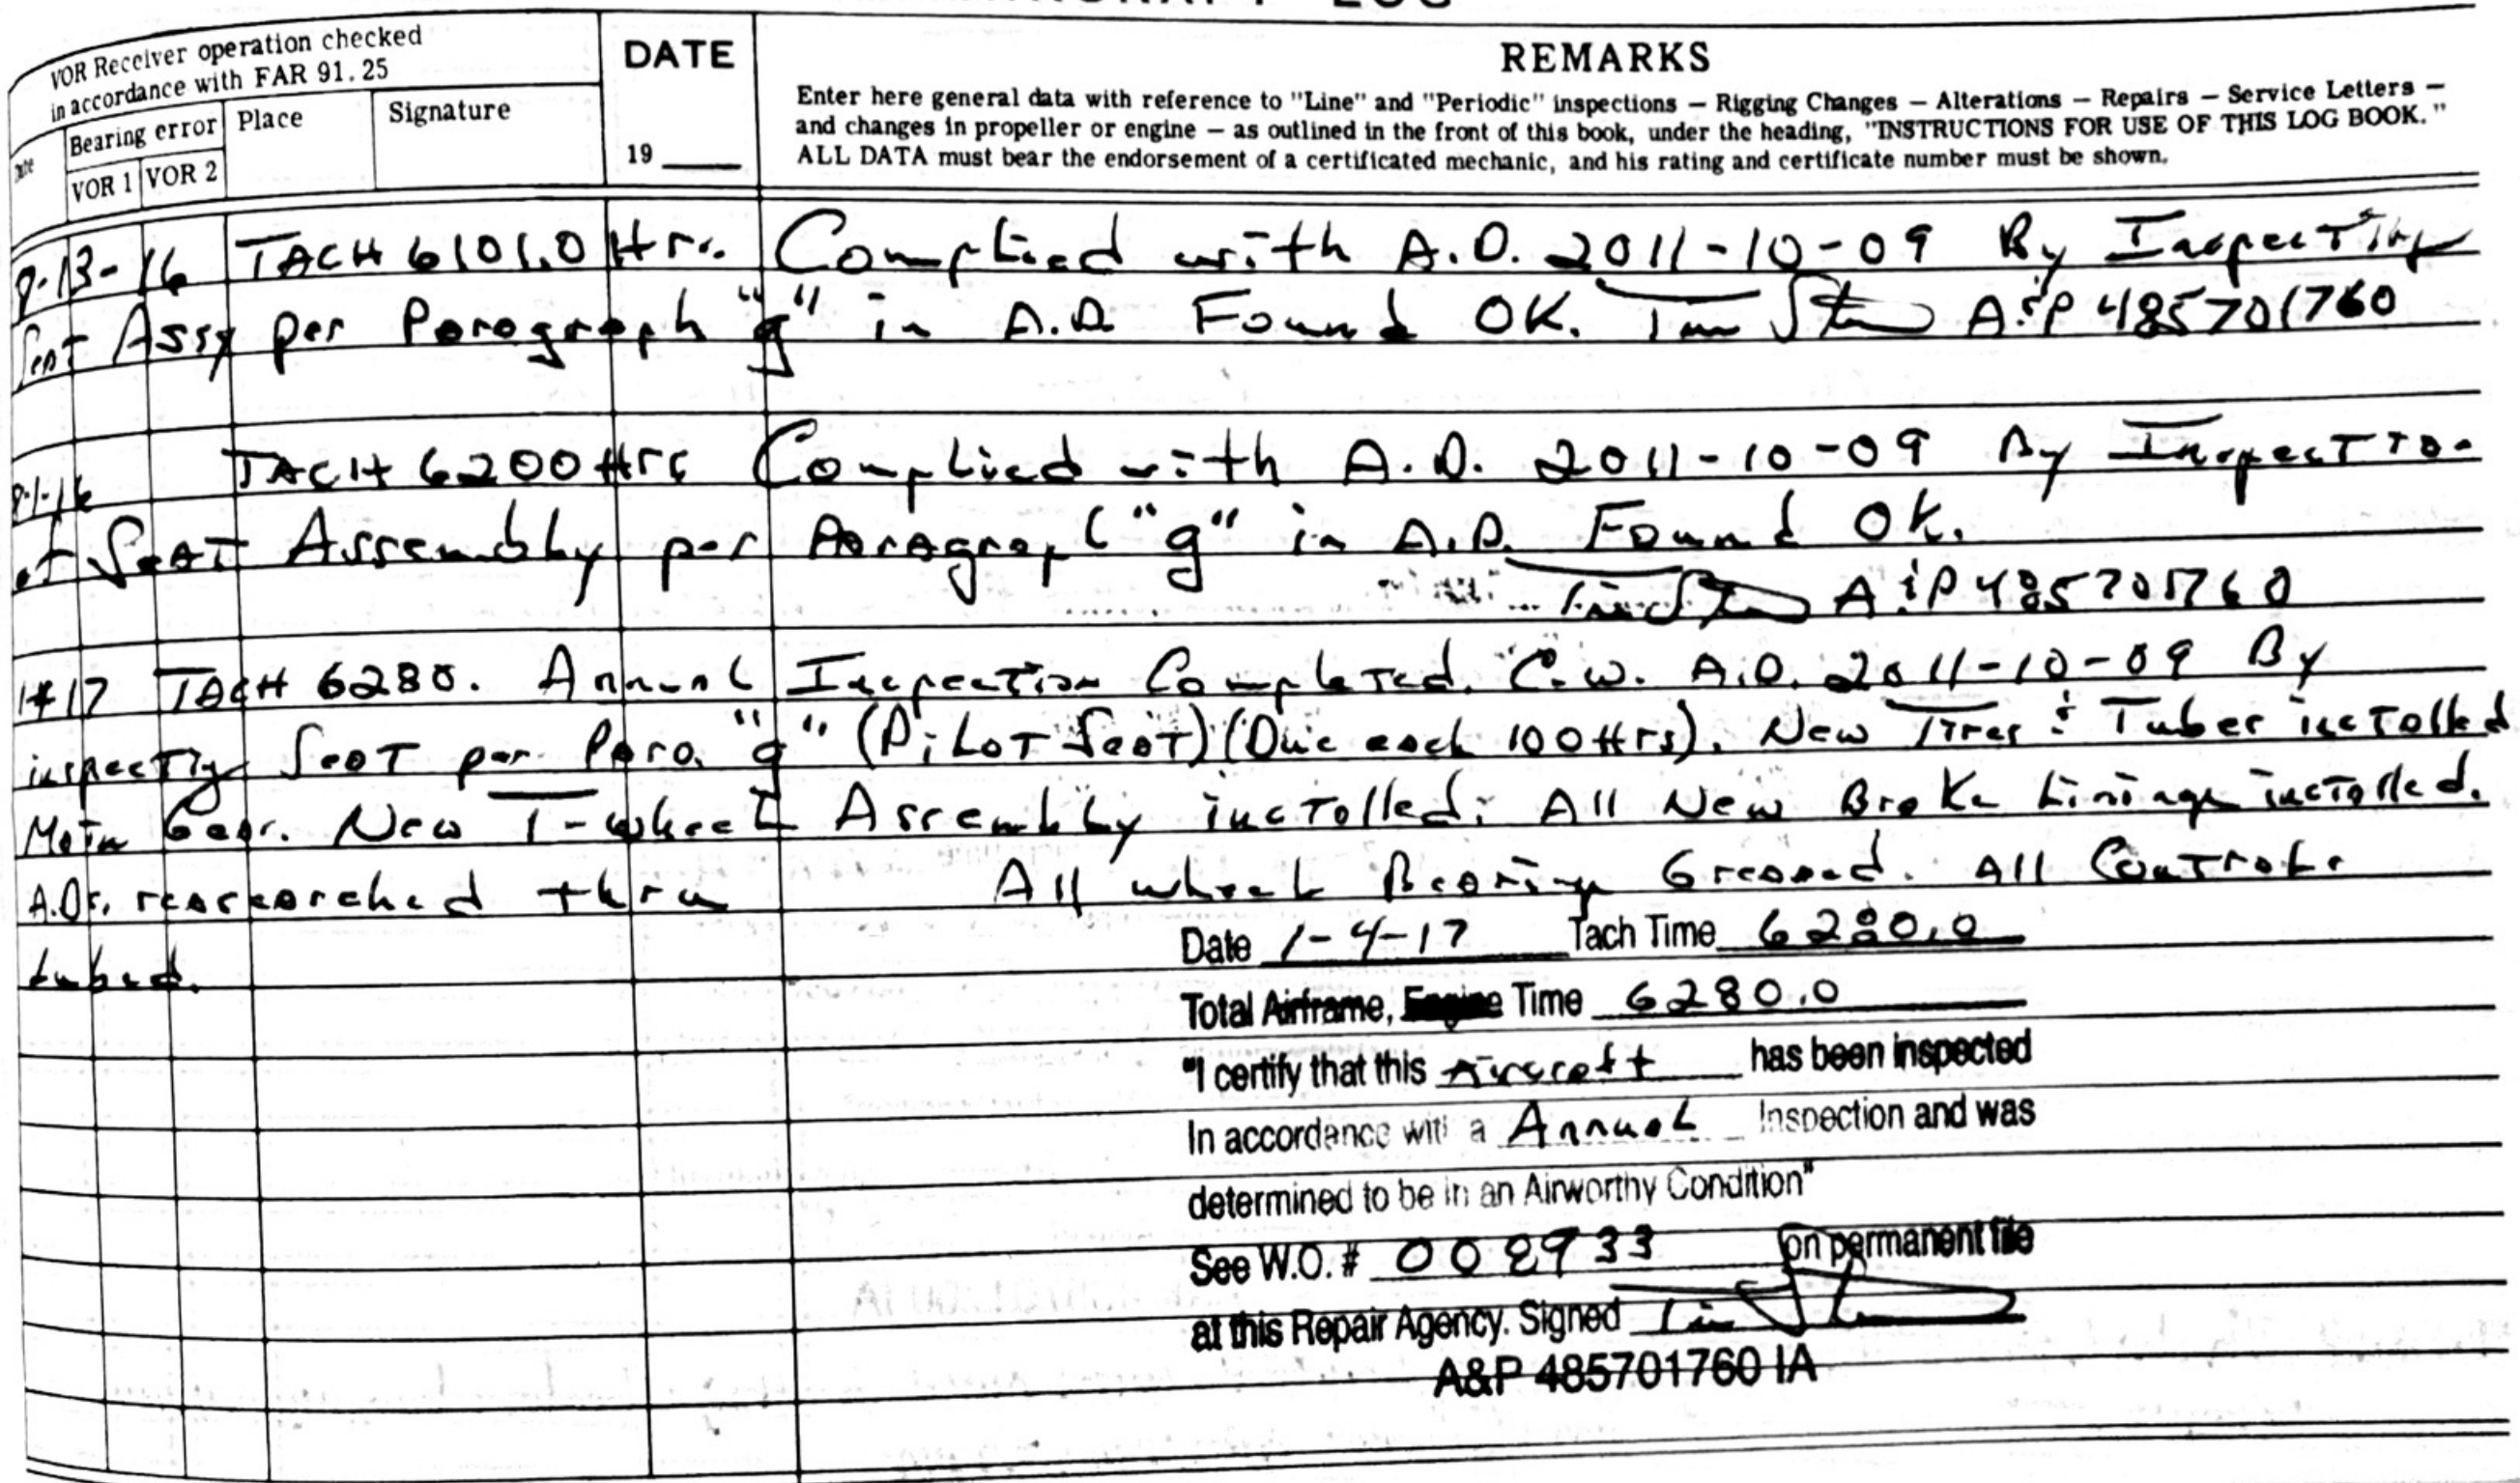 LOG
VOR Receiver operation checked
in accordance with FAR 91.25
Date
Bearing error
VOR 1 VOR 2
Place
Signature
DATE
19
REMARKS
Enter here general data with reference to "Line" and "Periodic" inspections — Rigging Changes — Alterations — Repairs — Service Letters —
and changes in propeller or engine — as outlined in the front of this book, under the heading, "INSTRUCTIONS FOR USE OF THIS LOG BOOK."
ALL DATA must bear the endorsement of a certificated mechanic, and his rating and certificate number must be shown.
-13-16 TACH 6101.0 Hrs. Complied with A.D. 2011-10-09 By Inspecting
Seat Assy per Paragraph "g" in A.D. Found OK. A&P 485701760
-1-16 TACH 6200 Hrs Complied with A.D. 2011-10-09 By Inspection
of Seat Assembly per Paragraph "g" in A.D. Found OK.
A&P 485701760
17 TACH 6280. Annual Inspection Completed. C.W. A.D. 2011-10-09 By
inspecting Seat per Para. "g" (Pilot Seat) (Due each 100 Hrs). New Tires & Tubes installed
Main Gear. New T-wheel Assembly installed. All New Brake Linings installed.
A.Ds. researched thru All wheel Bearings Greased. All Controls
lubed.
Date 1-4-17 Tach Time 6280.0
Total Airframe, Engine Time 6280.0
"I certify that this Aircraft has been inspected
In accordance with a Annual Inspection and was
determined to be in an Airworthy Condition"
See W.O. # 008933 on permanent file
at this Repair Agency. Signed
A&P 485701760 IA